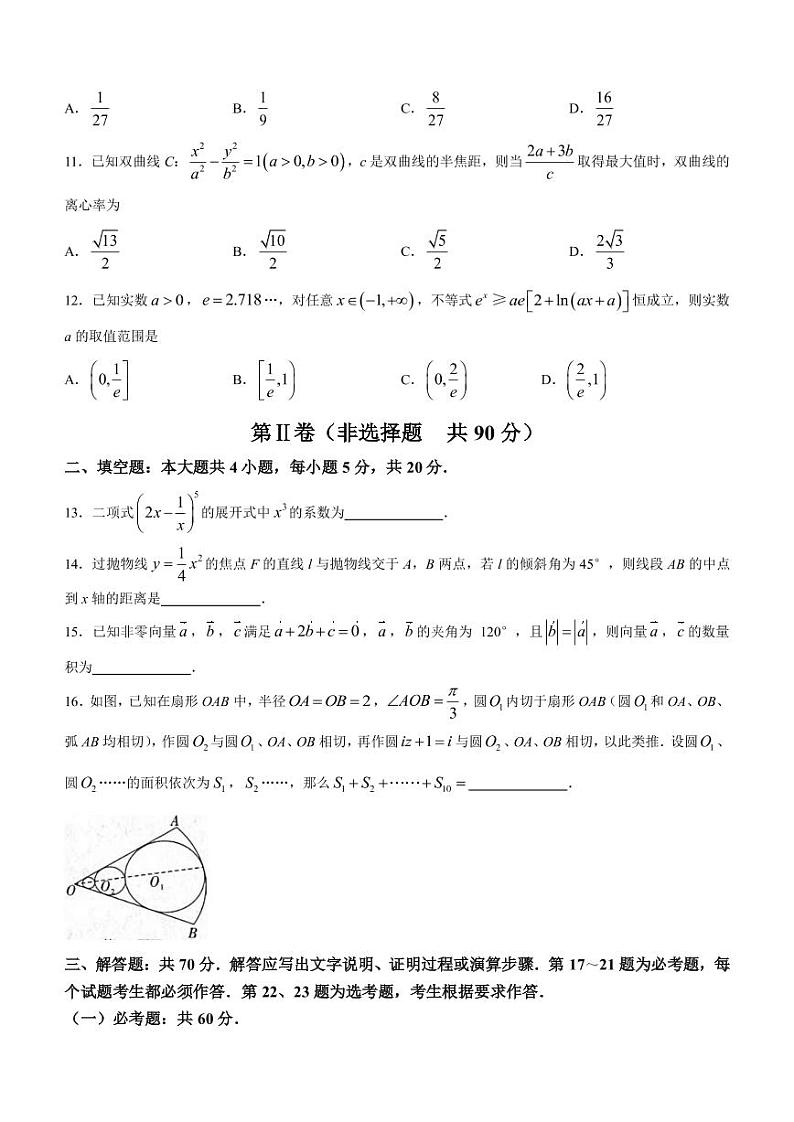 A. $\frac{1}{27}$ B. $\frac{1}{9}$ C. $\frac{8}{27}$ D. $\frac{16}{27}$
11.已知双曲线 C: $\frac{x^2}{a^2}-\frac{y^2}{b^2}=1(a>0,b>0)$,c 是双曲线的半焦距,则当$\frac{2a+3b}{c}$取得最大值时,双曲线的
离心率为
A. $\frac{\sqrt{13}}{2}$ B. $\frac{\sqrt{10}}{2}$ C. $\frac{\sqrt{5}}{2}$ D. $\frac{2\sqrt{3}}{3}$
12.已知实数 $a>0$,$e=2.718\cdots$,对任意 $x\in(-1,+\infty)$,不等式 $e^x\geq ae[2+\ln(ax+a)]$ 恒成立,则实数
a 的取值范围是
A. $\left(0,\frac{1}{e}\right]$ B. $\left[\frac{1}{e},1\right)$ C. $\left(0,\frac{2}{e}\right)$ D. $\left(\frac{2}{e},1\right)$
第Ⅱ卷(非选择题 共 90 分)
二、填空题:本大题共 4 小题,每小题 5 分,共 20 分.
13.二项式$\left(2x-\frac{1}{x}\right)^5$的展开式中 $x^3$ 的系数为______.
14.过抛物线 $y=\frac{1}{4}x^2$ 的焦点 F 的直线 l 与抛物线交于 A,B 两点,若 l 的倾斜角为 45°,则线段 AB 的中点
到 x 轴的距离是______.
15.已知非零向量 $\vec{a}$,$\vec{b}$,$\vec{c}$ 满足 $\vec{a}+2\vec{b}+\vec{c}=\vec{0}$,$\vec{a}$,$\vec{b}$ 的夹角为 120°,且 $|\vec{b}|=|\vec{a}|$,则向量 $\vec{a}$,$\vec{c}$ 的数量
积为______.
16.如图,已知在扇形 OAB 中,半径 $OA=OB=2$,$\angle AOB=\frac{\pi}{3}$,圆 $O_1$ 内切于扇形 OAB(圆 $O_1$ 和 OA、OB、
弧 AB 均相切),作圆 $O_2$ 与圆 $O_1$、OA、OB 相切,再作圆 $iz+1=i$ 与圆 $O_2$、OA、OB 相切,以此类推.设圆 $O_1$、
圆 $O_2$……的面积依次为 $S_1$,$S_2$……,那么 $S_1+S_2+\cdots\cdots+S_{10}=$______.
A
O
$O_2$
$O_1$
B
三、解答题:共 70 分.解答应写出文字说明、证明过程或演算步骤.第 17~21 题为必考题,每
个试题考生都必须作答.第 22、23 题为选考题,考生根据要求作答.
(一)必考题:共 60 分.